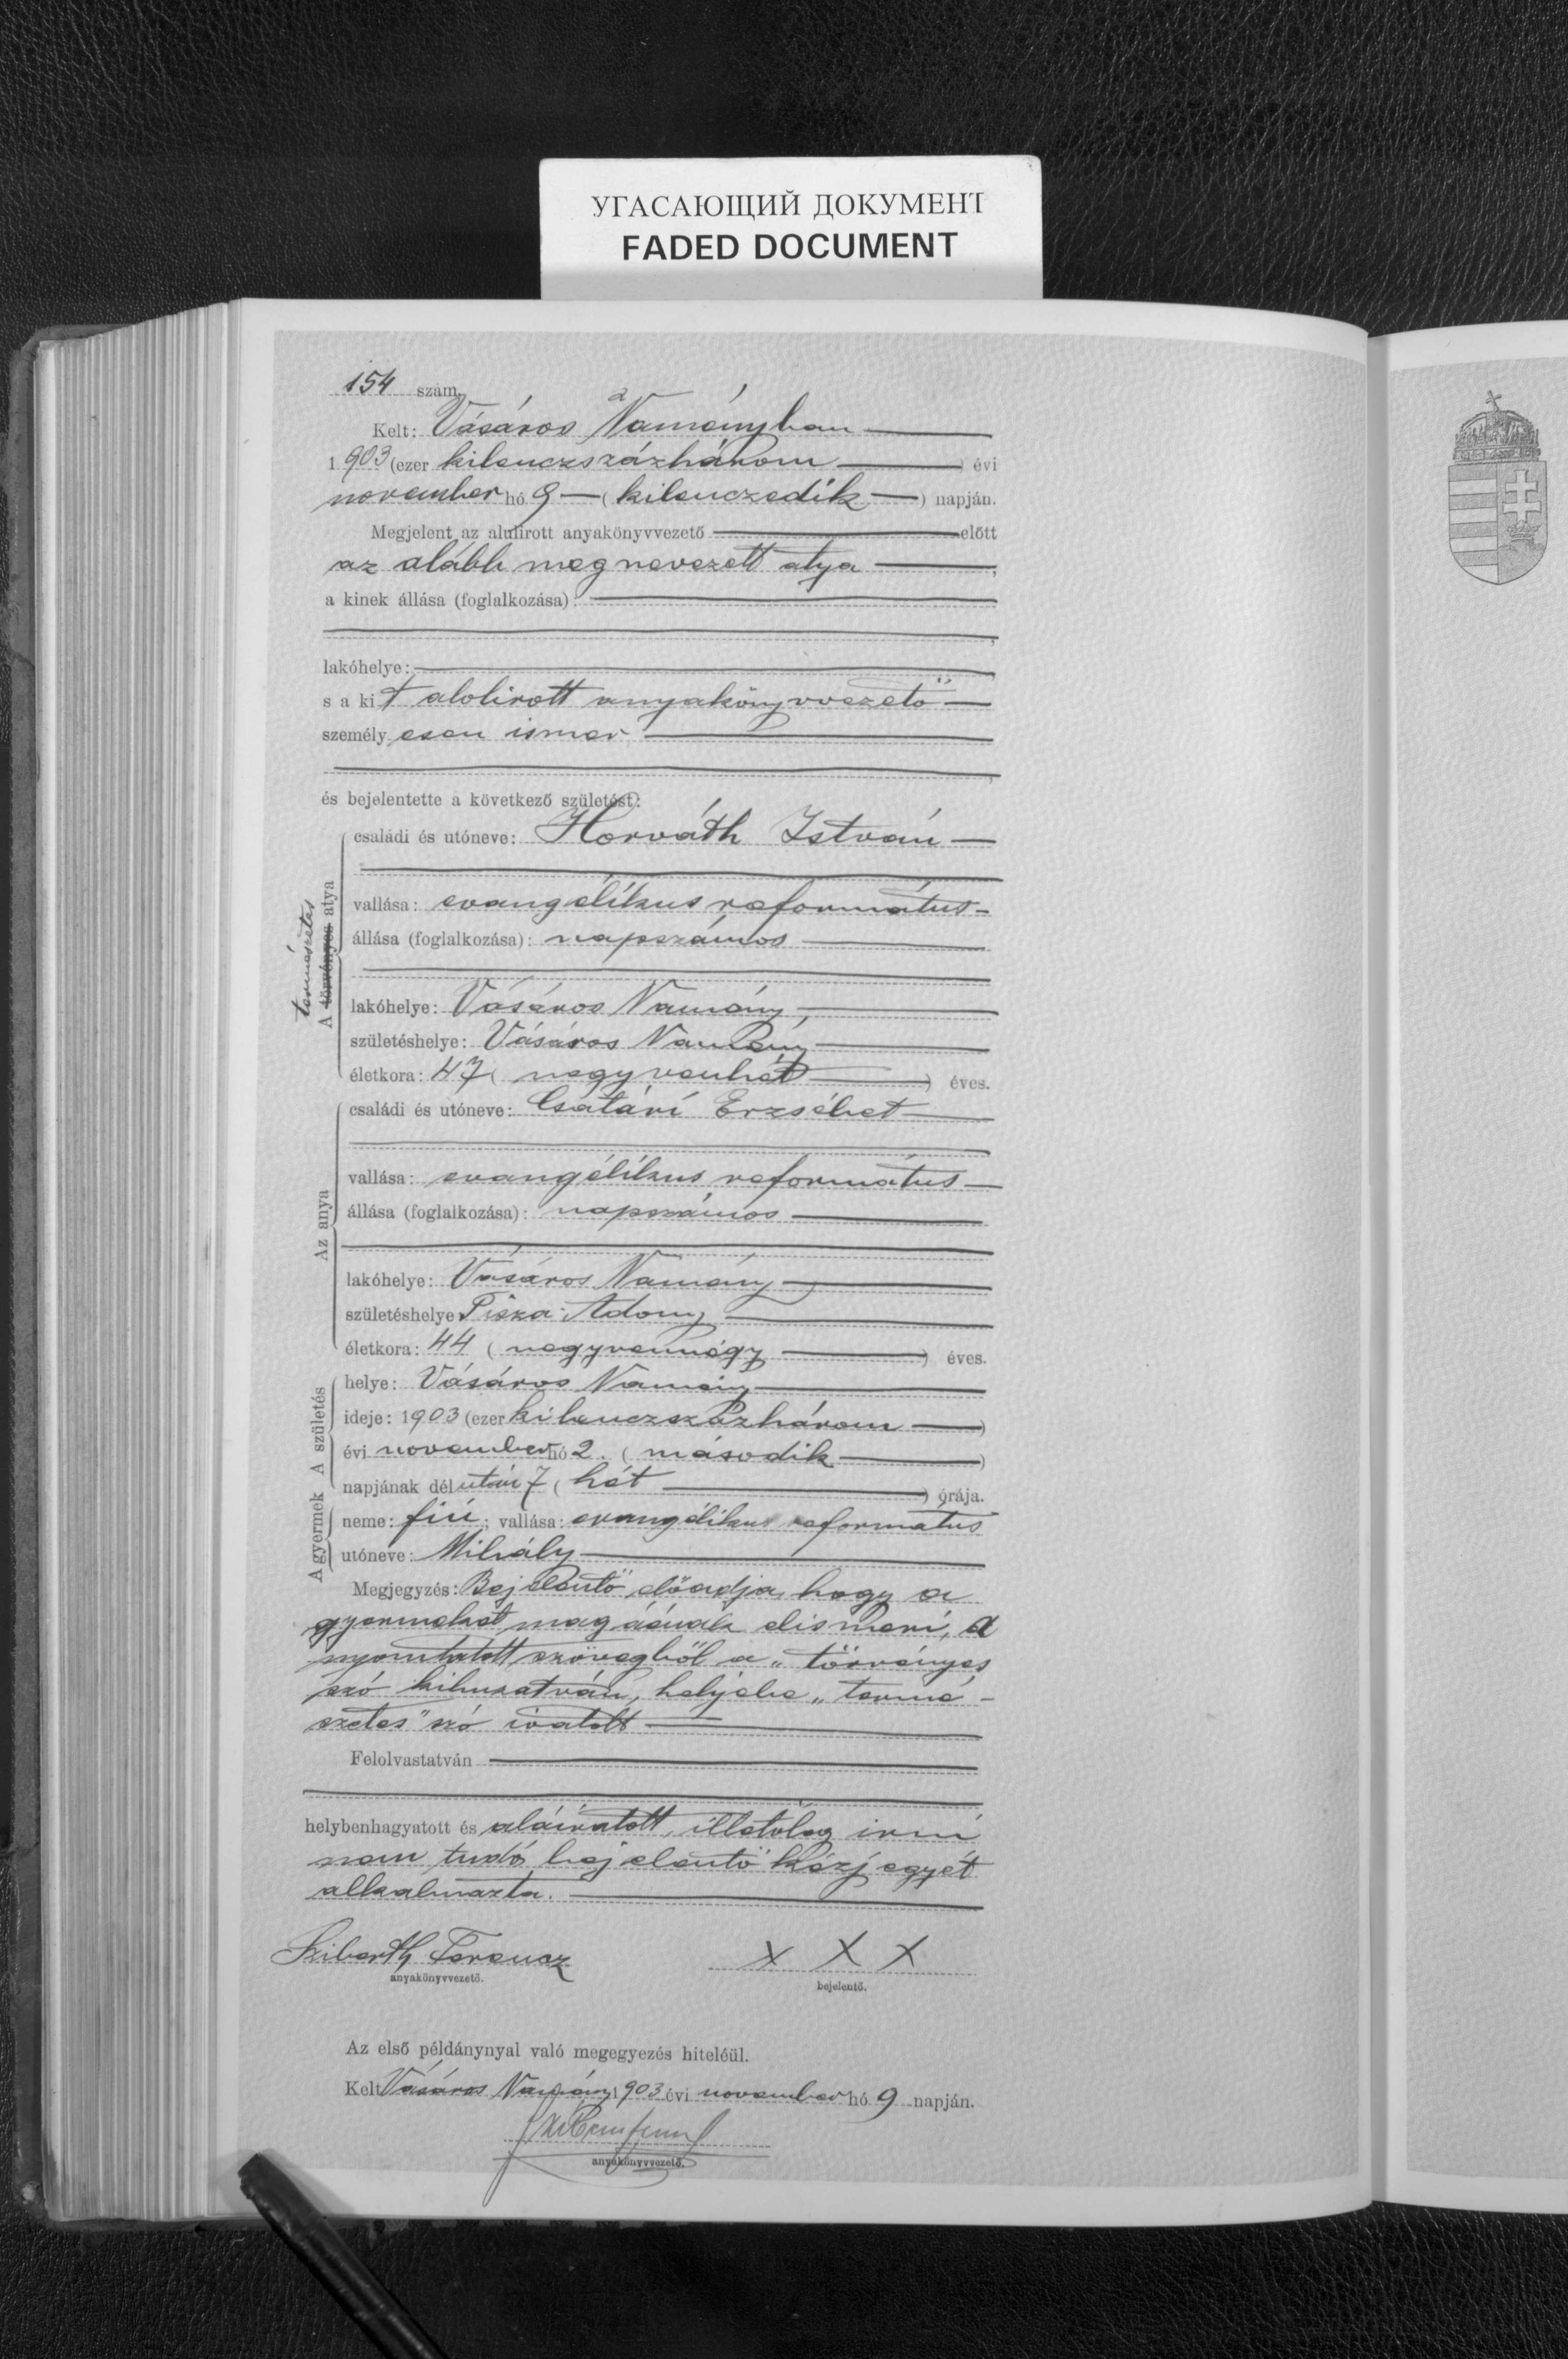 УГАСАЮЩИЙ ДОКУМЕНТ
FADED DOCUMENT
154 szám.
Kelt: Vásáros Naményban
1903 (ezer kilenczszázhárom) évi
november hó 9 (kilenczedik) napján.
Megjelent az alulirott anyakönyvvezető előtt
az alább megnevezett atya,
a kinek állása (foglalkozása):
lakóhelye:
s a kit alolirott anyakönyvvezető
személyesen ismer
és bejelentette a következő születést:
A törvényes atya
természetes
családi és utóneve: Horváth István
vallása: evangélikus református
állása (foglalkozása): napszámos
lakóhelye: Vásáros Namény,
születéshelye: Vásáros Namény
életkora: 47 (negyvenhét) éves.
Az anya
családi és utóneve: Csatári Erzsébet
vallása: evangélikus református
állása (foglalkozása): napszámos
lakóhelye: Vásáros Namény
születéshelye Tisza-Adony
életkora: 44 (negyvennégy) éves.
A születés
helye: Vásáros Namény
ideje: 1903 (ezer kilenczszázhárom)
évi november hó 2. (második)
napjának délután 7 (hét) órája.
A gyermek
neme: fiú; vallása: evangélikus református
utóneve: Mihály
Megjegyzés: Bejelentő előadja, hogy a
gyermeket magáénak elismeri, a
nyomtatott szövegből a „törvényes
szó kihuzatván, helyébe „termé-
szetes" szó iratott
Felolvastatván
helybenhagyatott és aláiratott, illetőleg irni
nem tudó bejelentő kézjegyét
alkalmazta.
Sziberth Ferencz X X X
anyakönyvvezető. bejelentő.
Az első példánynyal való megegyezés hiteléül.
Kelt Vásáros Namény 1903 évi november hó 9 napján.
anyakönyvvezető.